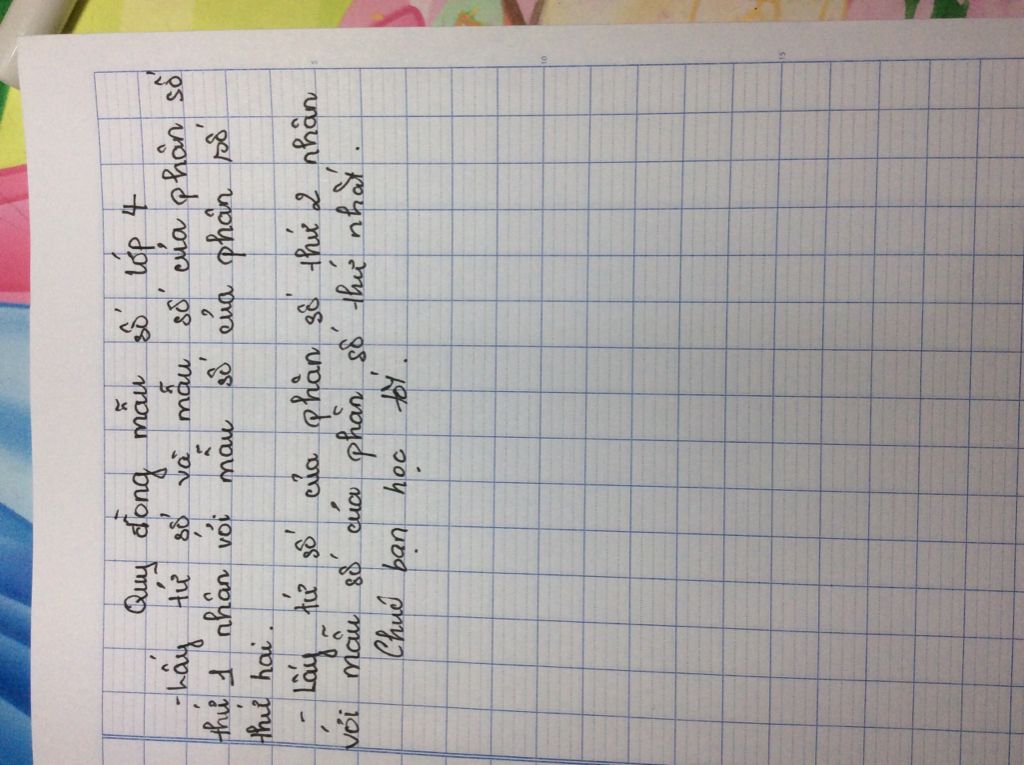 Quy đồng mẫu số lớp 4
- Lấy tử số và mẫu số của phân số
thứ 1 nhân với mẫu số của phân số
thứ hai.
- Lấy tử số của phân số thứ 2 nhân
với mẫu số của phân số thứ nhất.
Chúc bạn học tốt.
5
10
15